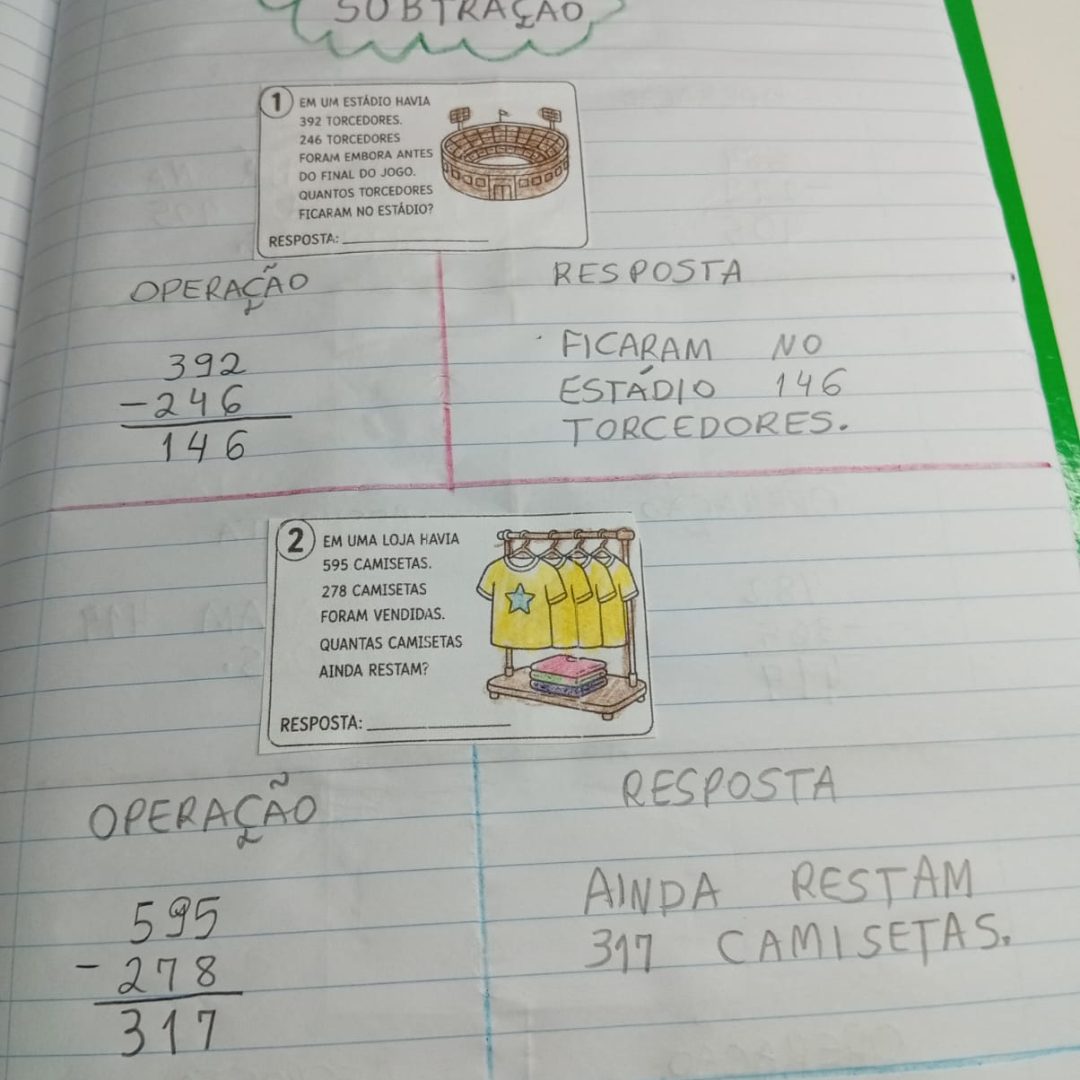 SUBTRAÇÃO
1 EM UM ESTÁDIO HAVIA
392 TORCEDORES.
246 TORCEDORES
FORAM EMBORA ANTES
DO FINAL DO JOGO.
QUANTOS TORCEDORES
FICARAM NO ESTÁDIO?
RESPOSTA:
OPERAÇÃO
392
-246
146
RESPOSTA
FICARAM NO
ESTÁDIO 146
TORCEDORES.
2 EM UMA LOJA HAVIA
595 CAMISETAS.
278 CAMISETAS
FORAM VENDIDAS.
QUANTAS CAMISETAS
AINDA RESTAM?
RESPOSTA:
OPERAÇÃO
595
- 278
317
RESPOSTA
AINDA RESTAM
317 CAMISETAS.